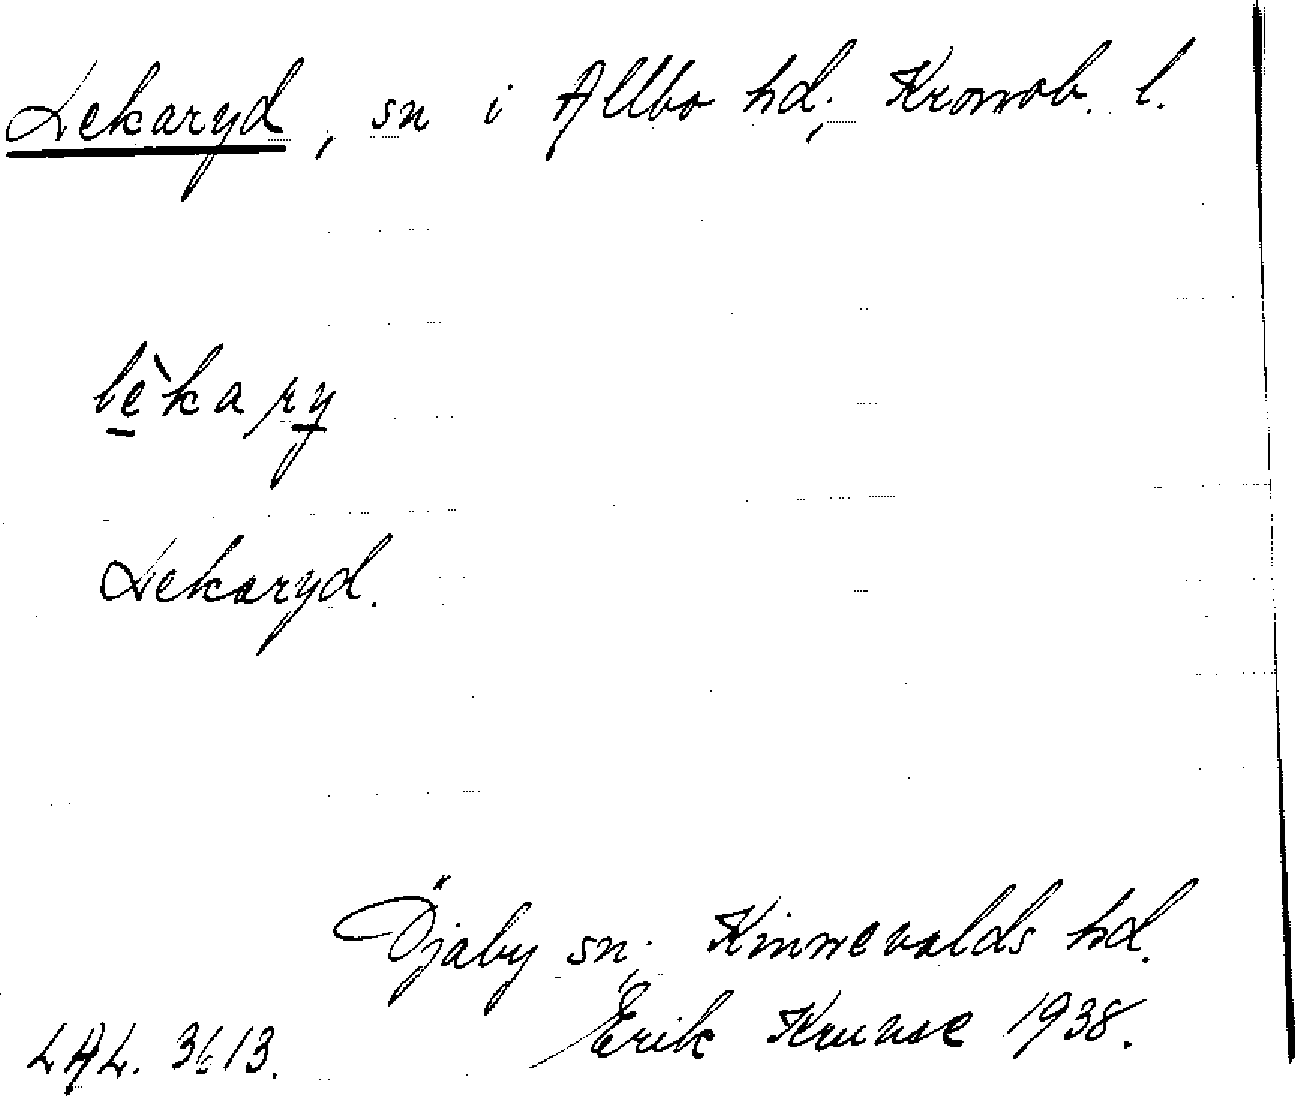 Lekaryd, sn i Allbo hd, Kronob. l.
lèkary
Lekaryd.
Öjaby sn. Kinnevalds hd.
Erik Kruuse 1938.
LAL. 3613.